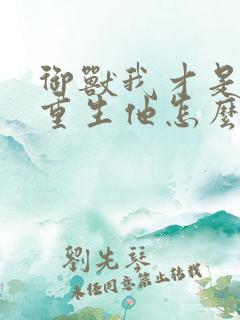 御獸我才是
重生他怎麼
劉先琴
未经同意禁止转载